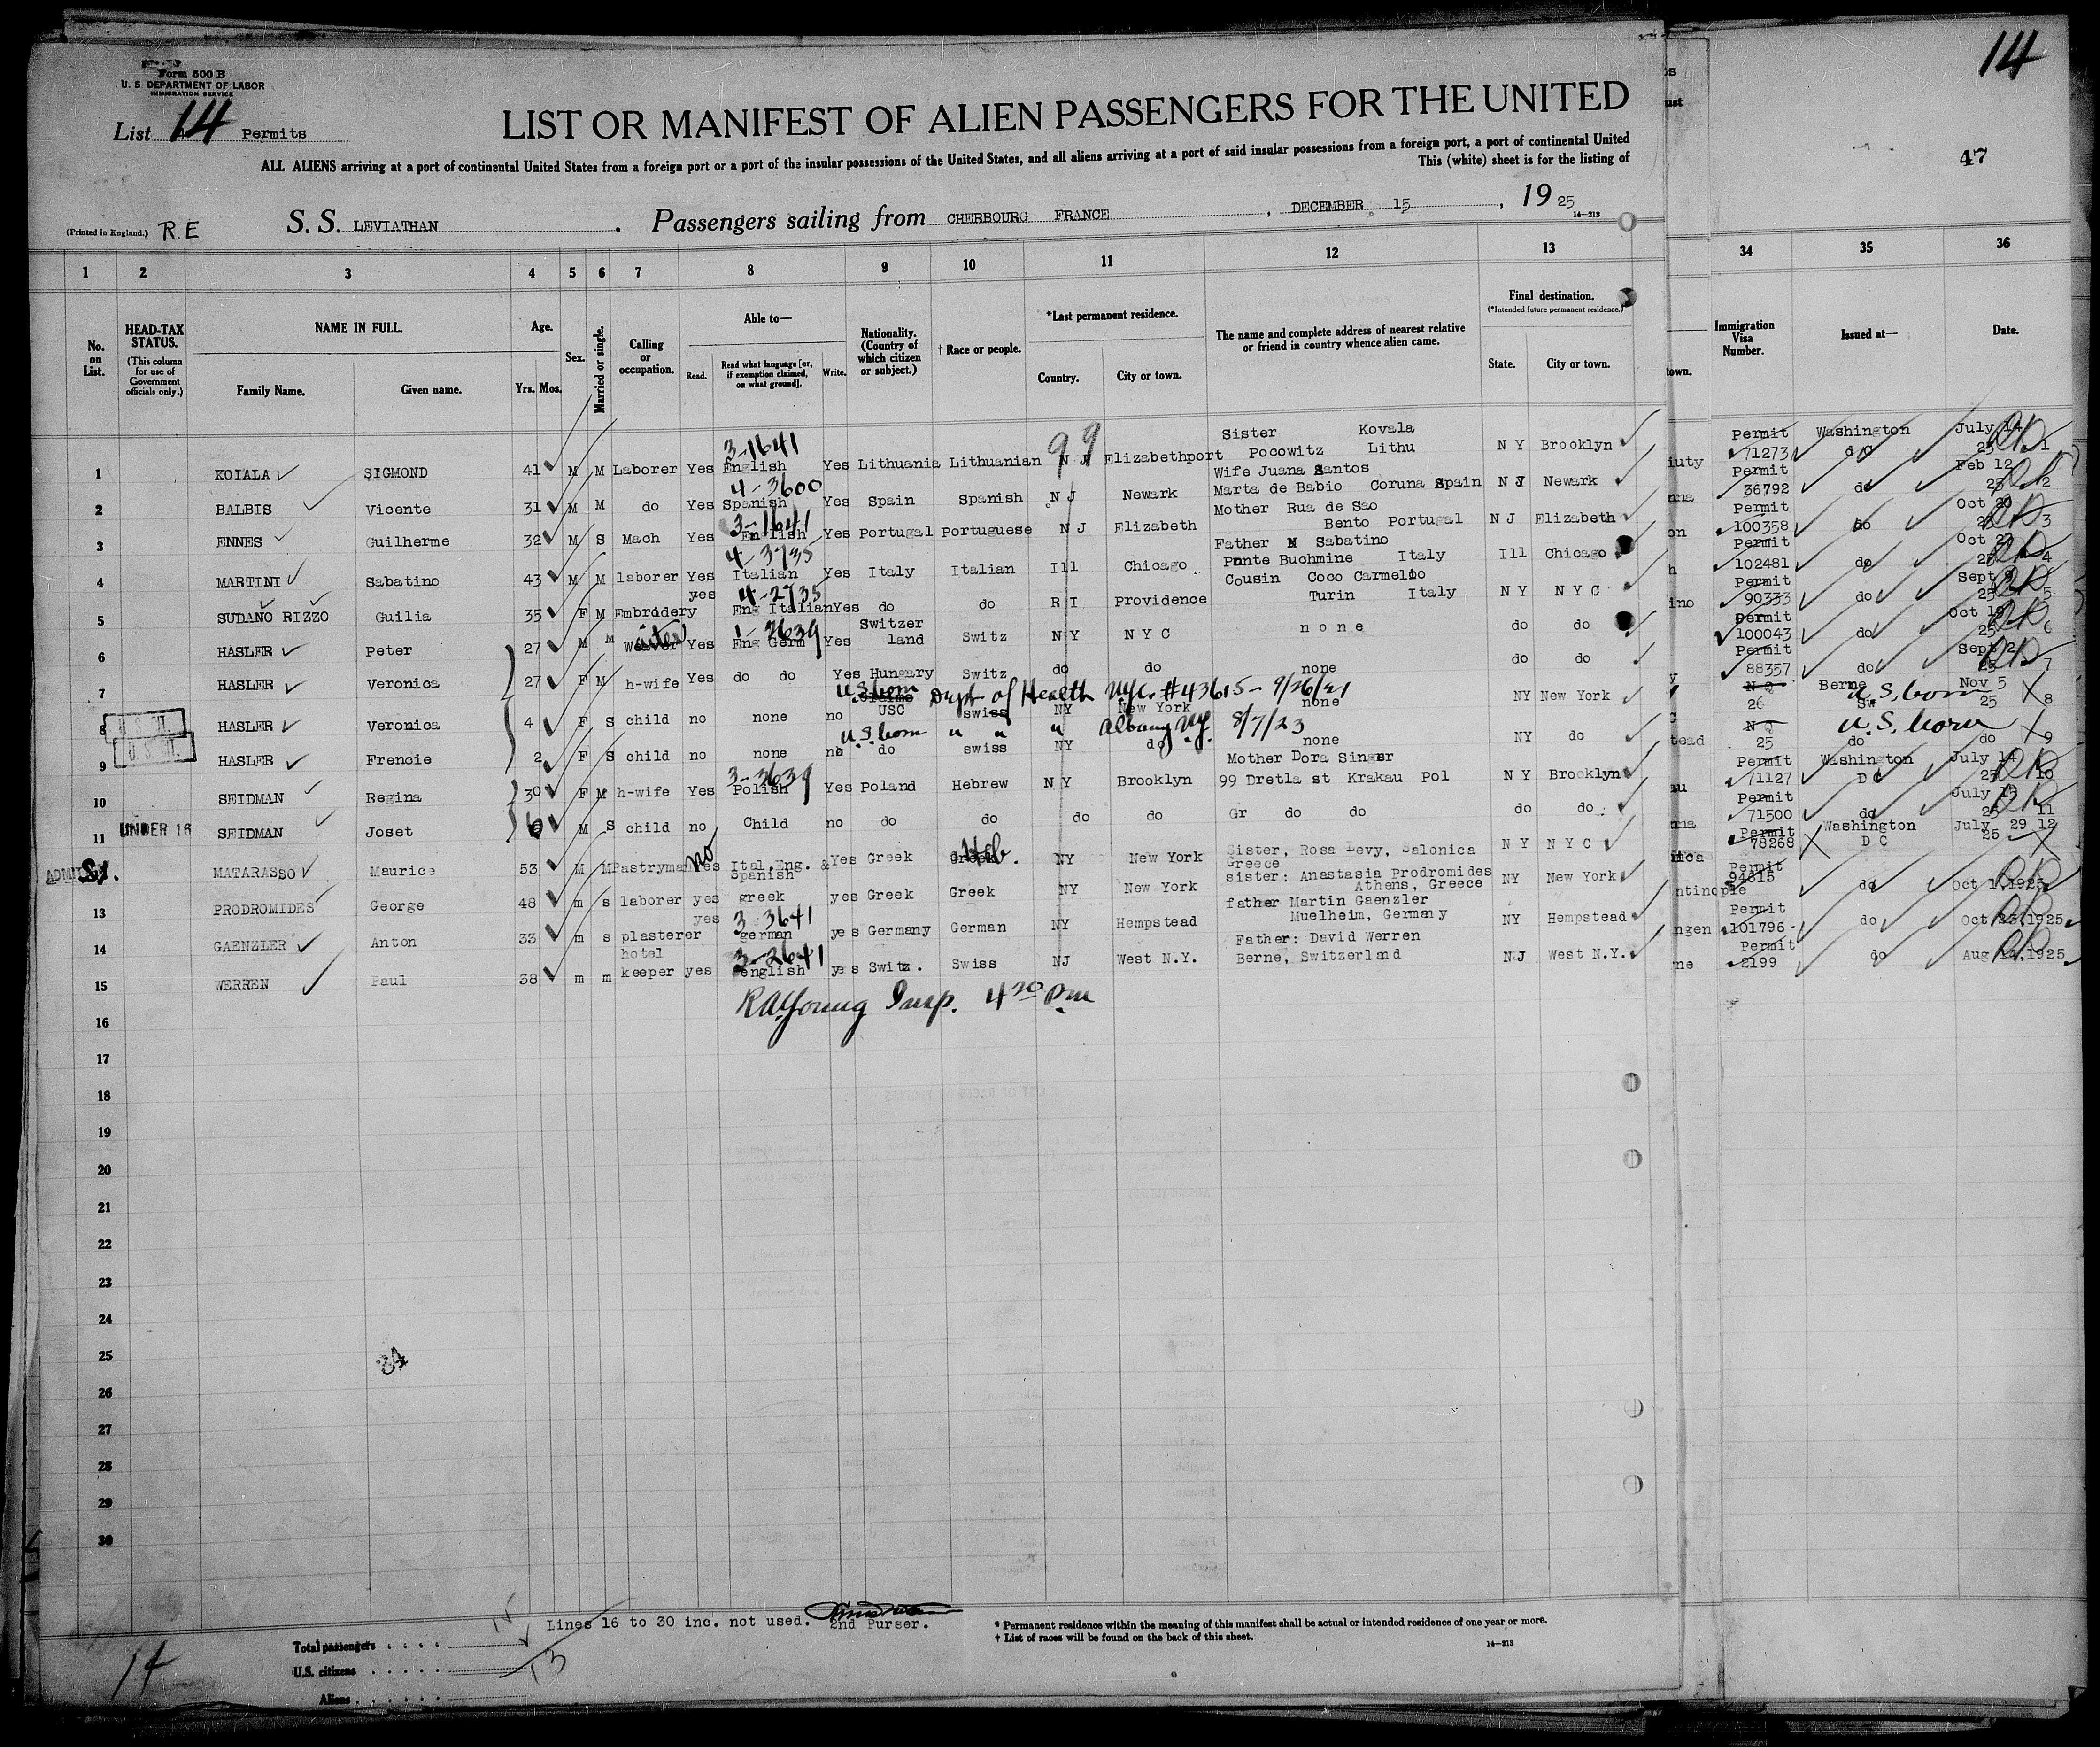 14
Form 500 B
U. S DEPARTMENT OF LABOR
IMMIGRATION SERVICE
List 14 Permits
LIST OR MANIFEST OF ALIEN PASSENGERS FOR THE UNITED
ALL ALIENS arriving at a port of continental United States from a foreign port or a port of the insular possessions of the United States, and all aliens arriving at a port of said insular possessions from a foreign port, a port of continental United
This (white) sheet is for the listing of
47
(Printed in England.) R.E S. S. LEVIATHAN . Passengers sailing from CHERBOURG FRANCE , DECEMBER 15 , 19 25
14—213
1 2 3 4 5 6 7 8 9 10 11 12 13 34 35 36
No. on List. HEAD-TAX STATUS. (This column for use of Government officials only.) NAME IN FULL. Family Name. Given name. Age. Yrs. Mos. Sex. Married or single. Calling or occupation. Able to— Read. Read what language [or, if exemption claimed, on what ground]. Write. Nationality. (Country of which citizen or subject.) † Race or people. *Last permanent residence. Country. City or town. The name and complete address of nearest relative or friend in country whence alien came. Final destination. (*Intended future permanent residence.) State. City or town. town. Immigration Visa Number. Issued at— Date.
99
3-1641 Sister Kovala Permit Washington July 14
1 KOIALA SIGMOND 41 M M Laborer Yes English Yes Lithuania Lithuanian N J Elizabethport Pocowitz Lithu N Y Brooklyn iuty 71273 d C 25 1
4-3600 Wife Juana Santos Permit Feb 12
2 BALBIS Vicente 31 M M do Yes Spanish Yes Spain Spanish N J Newark Marta de Babio Coruna Spain N J Newark nna 36792 do 25 2
3-1641 Mother Rua de Sao Permit Oct 20
3 ENNES Guilherme 32 M S Mach Yes English Yes Portugal Portuguese N J Elizabeth Bento Portugal N J Elizabeth on 100358 do 25 3
4-3735 Father M Sabatino Permit Oct 27
4 MARTINI Sabatino 43 M M laborer Yes Italian Yes Italy Italian Ill Chicago Pnnte Buohmine Italy Ill Chicago h 102481 do 25 4
yes 4-2735 Cousin Coco Carmelo Permit Sept
5 SUDANO RIZZO Guilia 35 F M Embrodery Eng Italian Yes do do R I Providence Turin Italy N Y N Y C ino 90333 do 25 5
1-2639 Switzer Permit Oct 19
6 HASLER Peter 27 M M Yes Eng Germ Yes land Switz N Y N Y C none do do 100043 do 25 6
Permit Sept 2
7 HASLER Veronica 27 F M h-wife Yes do do Yes Hungary Switz do do none do do y 88357 do 25 7
U.S. born Dept of Health Nyc. #43615 - 9/26/21 Berne U.S. born Nov 5
8 HASLER Veronica 4 F S child no none no USC swiss NY New York none NY New York 26 Sw 25 8
U.S. born " " " Albany NY. 8/7/23 U.S. born
9 HASLER Frencie 2 F S child no none no do swiss NY do none NY do tead 25 do do 9
3-3639 Mother Dora Singer Permit Washington July 14
10 SEIDMAN Regina 30 F M h-wife Yes Polish Yes Poland Hebrew N Y Brooklyn 99 Dretla st Krakau Pol N Y Brooklyn au 71127 D C 25 10
Permit July 15
11 UNDER 16 SEIDMAN Joset 6 M S child no Child no do do do do Gr do do do do nna 71500 do 25 11
no Heb. Sister, Rosa Levy, Salonica Greece Permit Washington July 29 12
ADMITTED S.I. MATARASSO Maurice 53 M M Pastryman Yes Ital,Eng. & Spanish Yes Greek Greek NY New York N Y N Y C nica 78268 D C 25
sister: Anastasia Prodromides Permit
13 PRODROMIDES George 48 m s laborer yes greek yes Greek Greek NY New York Athens, Greece NY New York ntinople 94615 do Oct 1,1925
yes 3-3641 father Martin Gaenzler Permit
14 GAENZLER Anton 33 m s plasterer german yes Germany German NY Hempstead Muelheim, Germany NY Hempstead ngen 101796 do Oct 23,1925
hotel 3-2641 Father: David Werren Permit
15 WERREN Paul 38 m m keeper yes english yes Switz. Swiss NJ West N.Y. Berne, Switzerland NJ West N.Y. ne 2199 do Aug 14,1925
R A Young Insp. 4 30 pm
16
17
18
19
20
21
22
23
24
25
34
26
27
28
29
30
Lines 16 to 30 inc. not used. 2nd Purser.
* Permanent residence within the meaning of this manifest shall be actual or intended residence of one year or more.
† List of races will be found on the back of this sheet.
14—213
Total passengers . . . . 15
U.S. citizens . . . . .
Aliens . . . . . . 13
14